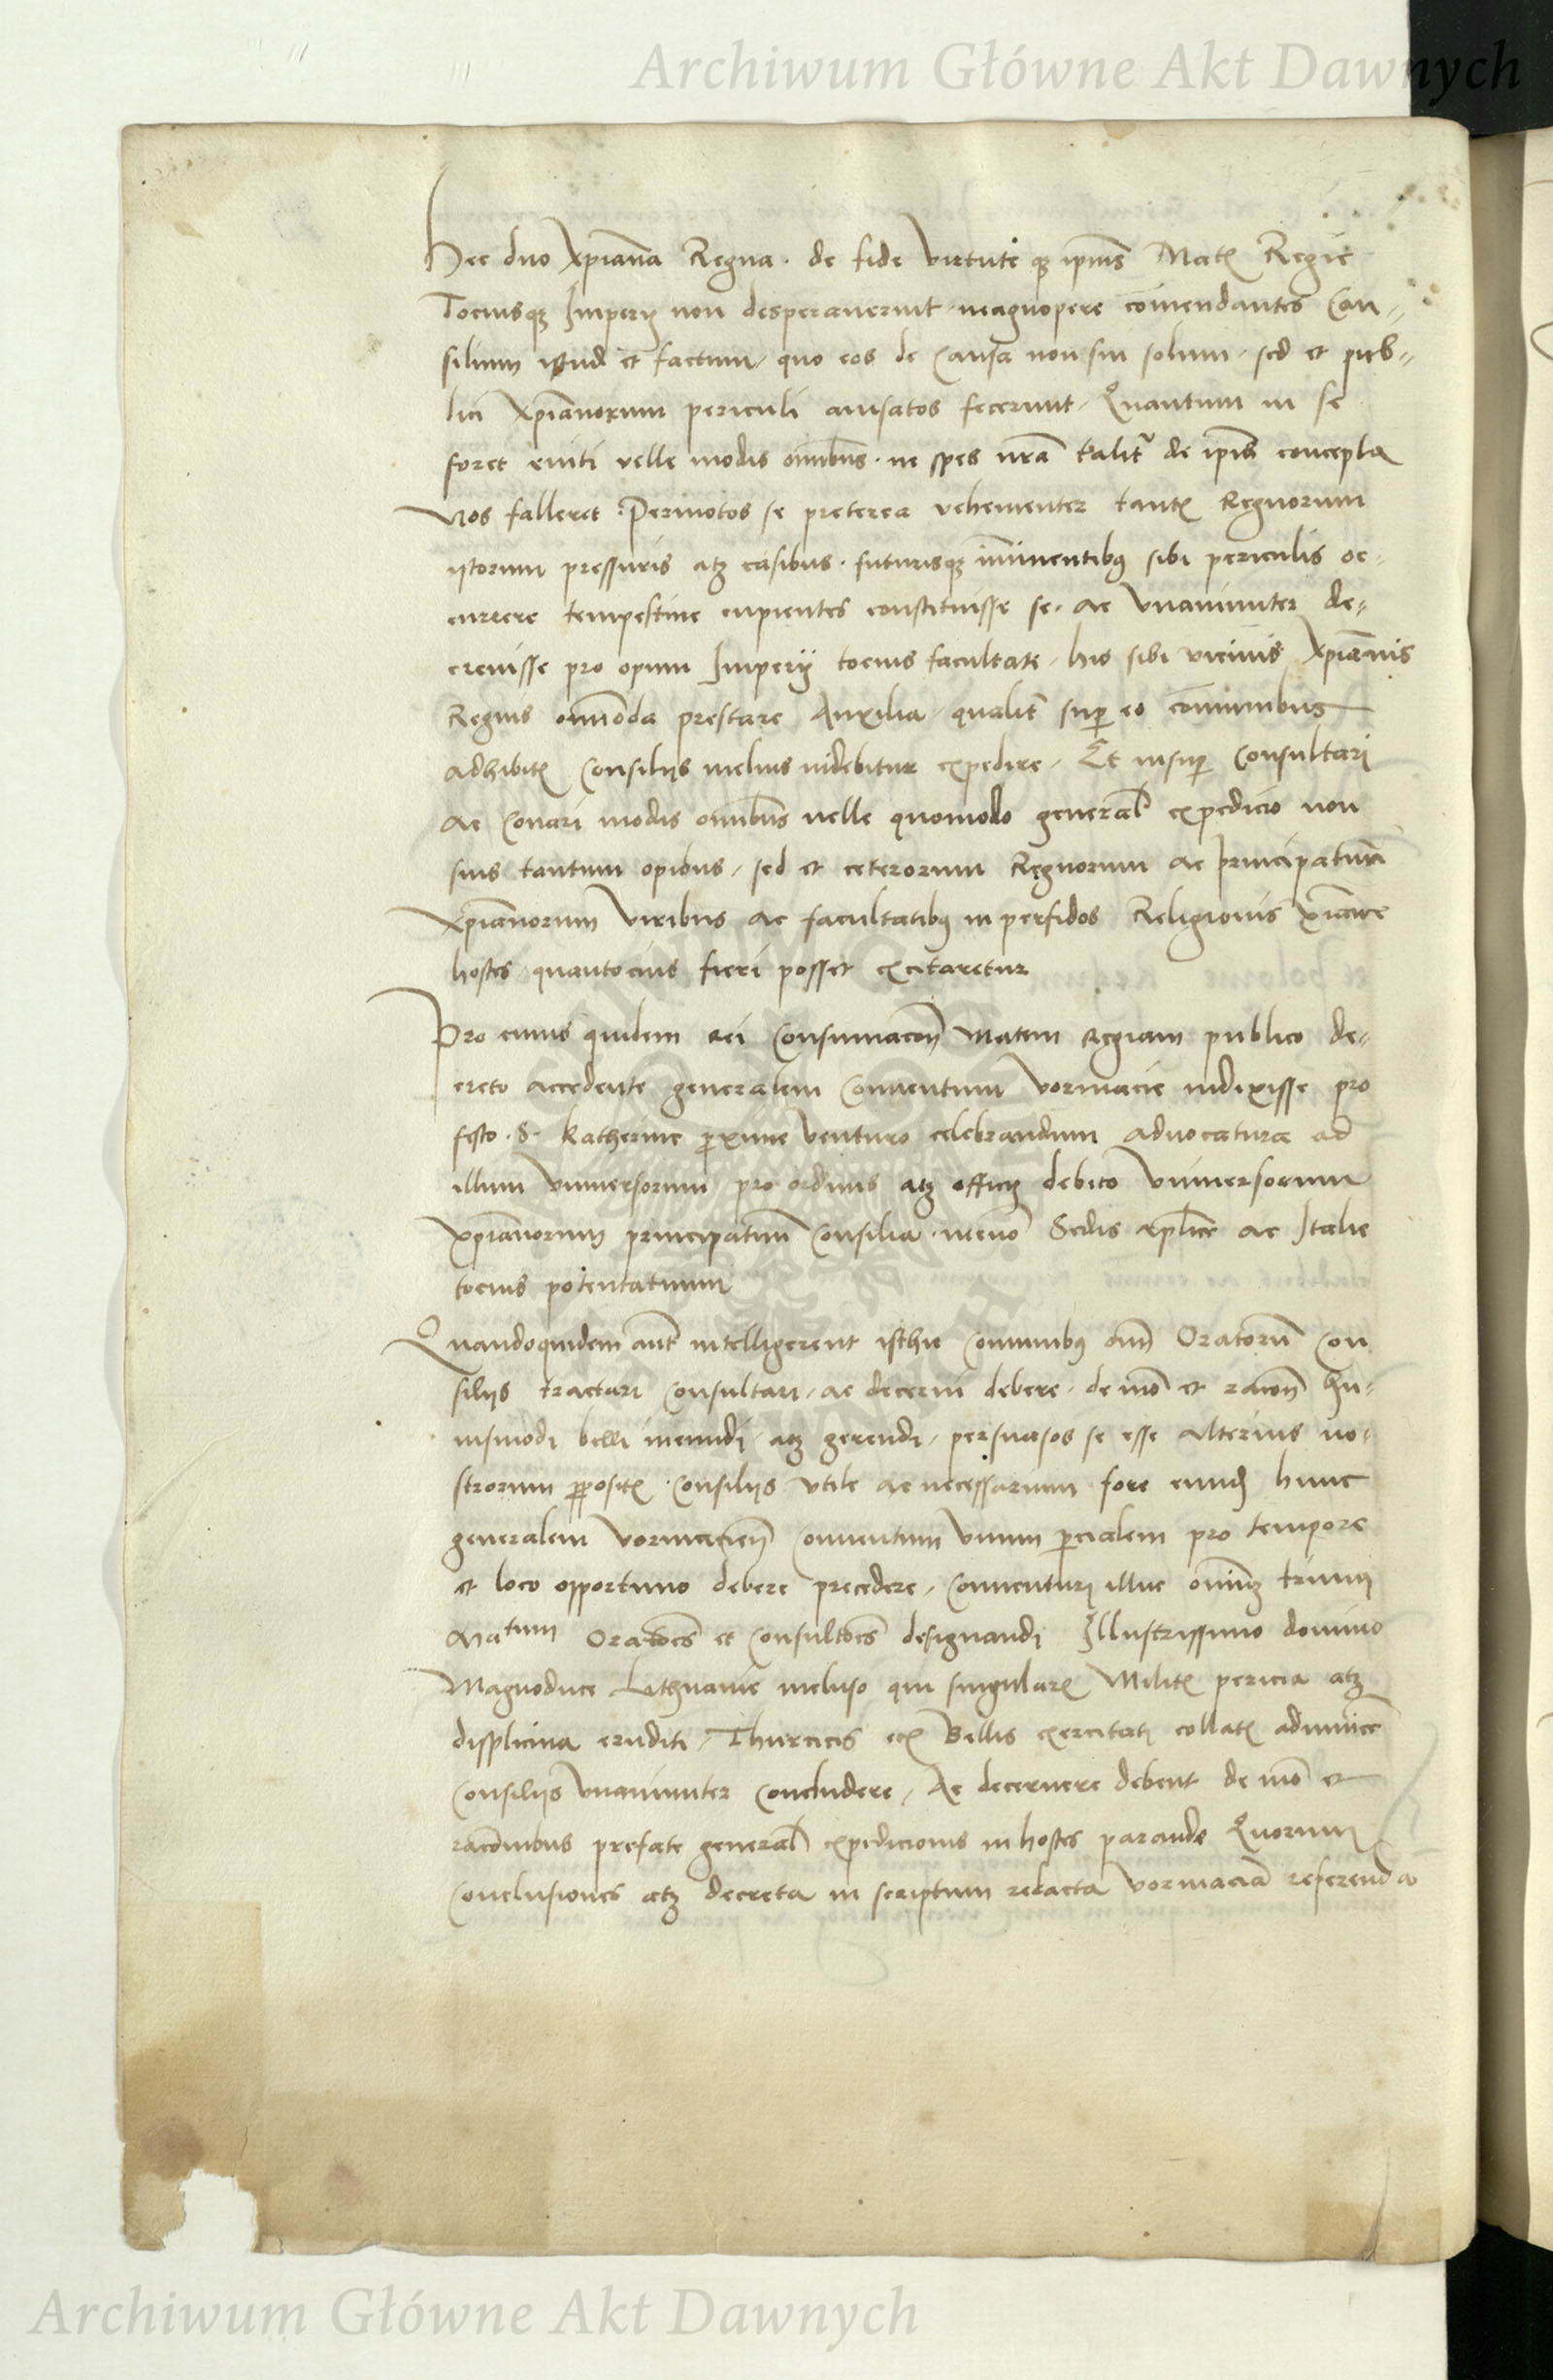 Archiwum Główne Akt Dawnych
Hec duo xp̄iana Regna · de fide virtute qꝫ ip̄ius Matꝭ Regie
Tociusqꝫ Imperij non desperaverint · magnopere com̄endantes Con-
silium istud et factum / quo eos de causa non sui solum / sed et pub-
lici xp̄ianorum periculi auisatos fecerunt / Quantum in se
foret eniti velle modis om̄ibus · ne spes nr̄a talit̄ de ip̄is concepta
Nos falleret · Permotos se preterea vehementer tantꝭ Regnorum
istorum pressuris atqꝫ casibus · futurisqꝫ im̄inentibꝰ sibi periculis oc-
currere tempestiue cupientes constituisse se · ac vnanimiter de-
creuisse pro opum Imperij tocius facultate / his sibi vicinis xp̄ianis
Regnis om̄imoda prestare Auxilia / qualit̄ sup̄ eo com̄unibus
adhibitꝭ Consilijs melius uidebitur expedire / Et insup̄ Consultari
ac Conari modis om̄ibus uelle quomodo general̄ expedicio non
suis tantum opibus / sed et ceterorum Regnorum ac principatuum
xp̄ianorum viribus ac facultatibꝰ in perfidos Religionis xp̄iane
hostes quantocius fieri posset excitaretur
Pro cuius quidem rei Consumacōn̄ Matem regiam publico de-
creto accedente generalem Conuentum vormacie indixisse pro
festo · S · Katherine p̄xime venturo celebrandum aduocatura ad
illum vniuersorum pro ordinis atqꝫ officij debito vniuersorum
xp̄ianorum principatuum Consilia · necnō Sedis ap̄lice ac Italie
tocius potentatuum
Quandoquidem aut̄ intelligerent isthic Com̄unibꝰ om̄ Oratorū Con
silijs tractari Consultari / ac decerni debere · de mō et racōn̄ hu-
iusmodi belli ineundi · atqꝫ gerendi / persuasos se esse alterius no-
strorum p̄positꝭ · Consilijs vtile ac necessarium fore eund̄ hunc
generalem vormacien̄ Conuentum vnum p̄cialem pro tempore
et loco opportuno debere precedere / Conuenturi illuc om̄iū trium
Matum Oratōes et Consultōes designandi Illustrissimo domino
Magnoduce Lithuanie incluso qui singularꝭ Militꝭ pericia atqꝫ
displicina eruditi / Thurcicis ecꝭ Bellis exercitati collatꝭ adinuicē
Consilijs vnanimiter Concludere / Ac decernere debent de mō et
racōnibus prefate general̄ expedicionis in hostes parande Quorum
Conclusiones atqꝫ decreta in scriptum redacta vormaciā referenda
Archiwum Główne Akt Dawnych